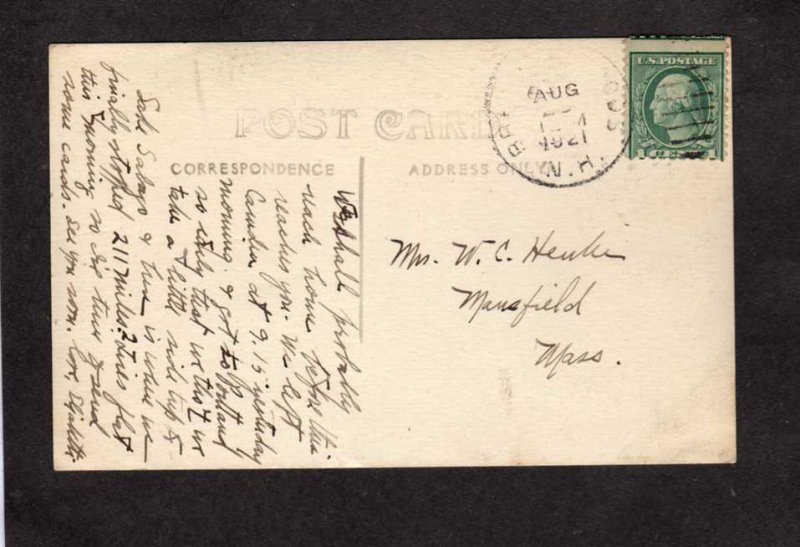 POST CARD
CORRESPONDENCE
ADDRESS ONLY
AUG
1921
N.H.
U.S. POSTAGE
We shall probably
reach home before this
reaches you. We left
Camden at 9.15 yesterday
morning & got to Portland
so early that we thot we
take a little side trip to
Lake Sebago & there is where we
finally stopped 211 miles. 2 tires flat
this morning so I've time to send
some cards. See you soon. Love, Elizabeth.
Mrs. W. C. Henke
Mansfield
Mass.